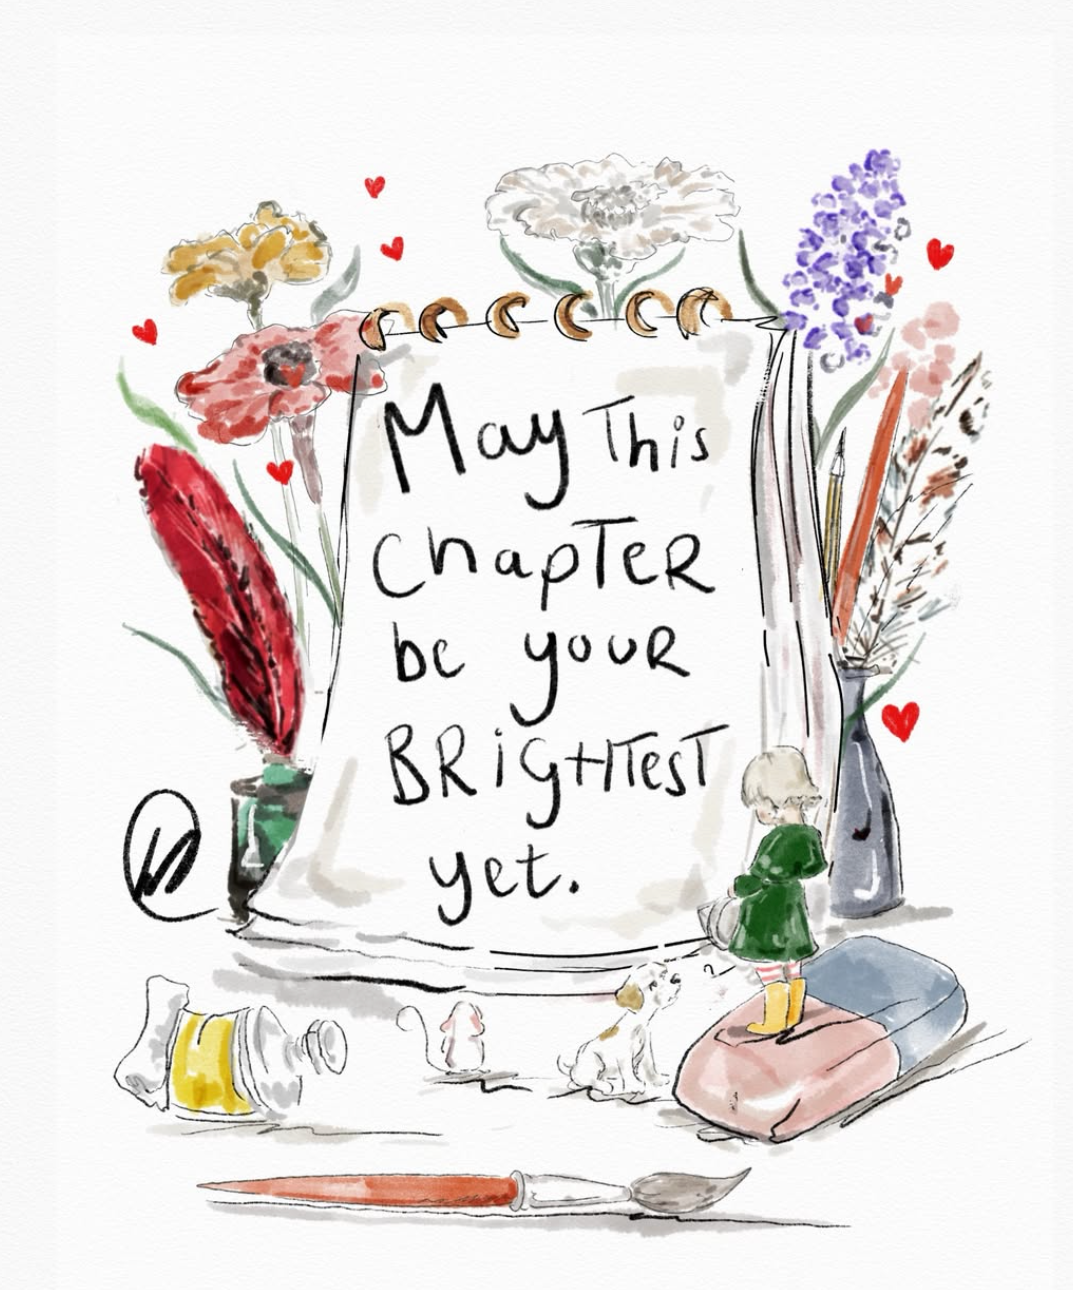 May This
ChapTeR
be youR
BRigHTesT
yet.